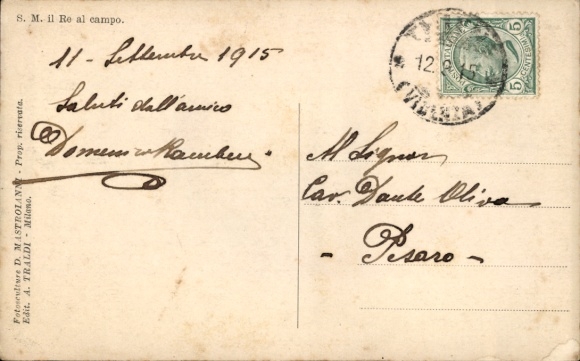 S. M. il Re al campo.
11 - Settembre 1915
Saluti dall'amico
Domenico
Al Signor
Cav. Dante Oliva
- Pesaro -
Fotosculture D. MASTROIANNI - Prop. riservata.
Edit. A. TRALDI - Milano.
12. 15
5 5